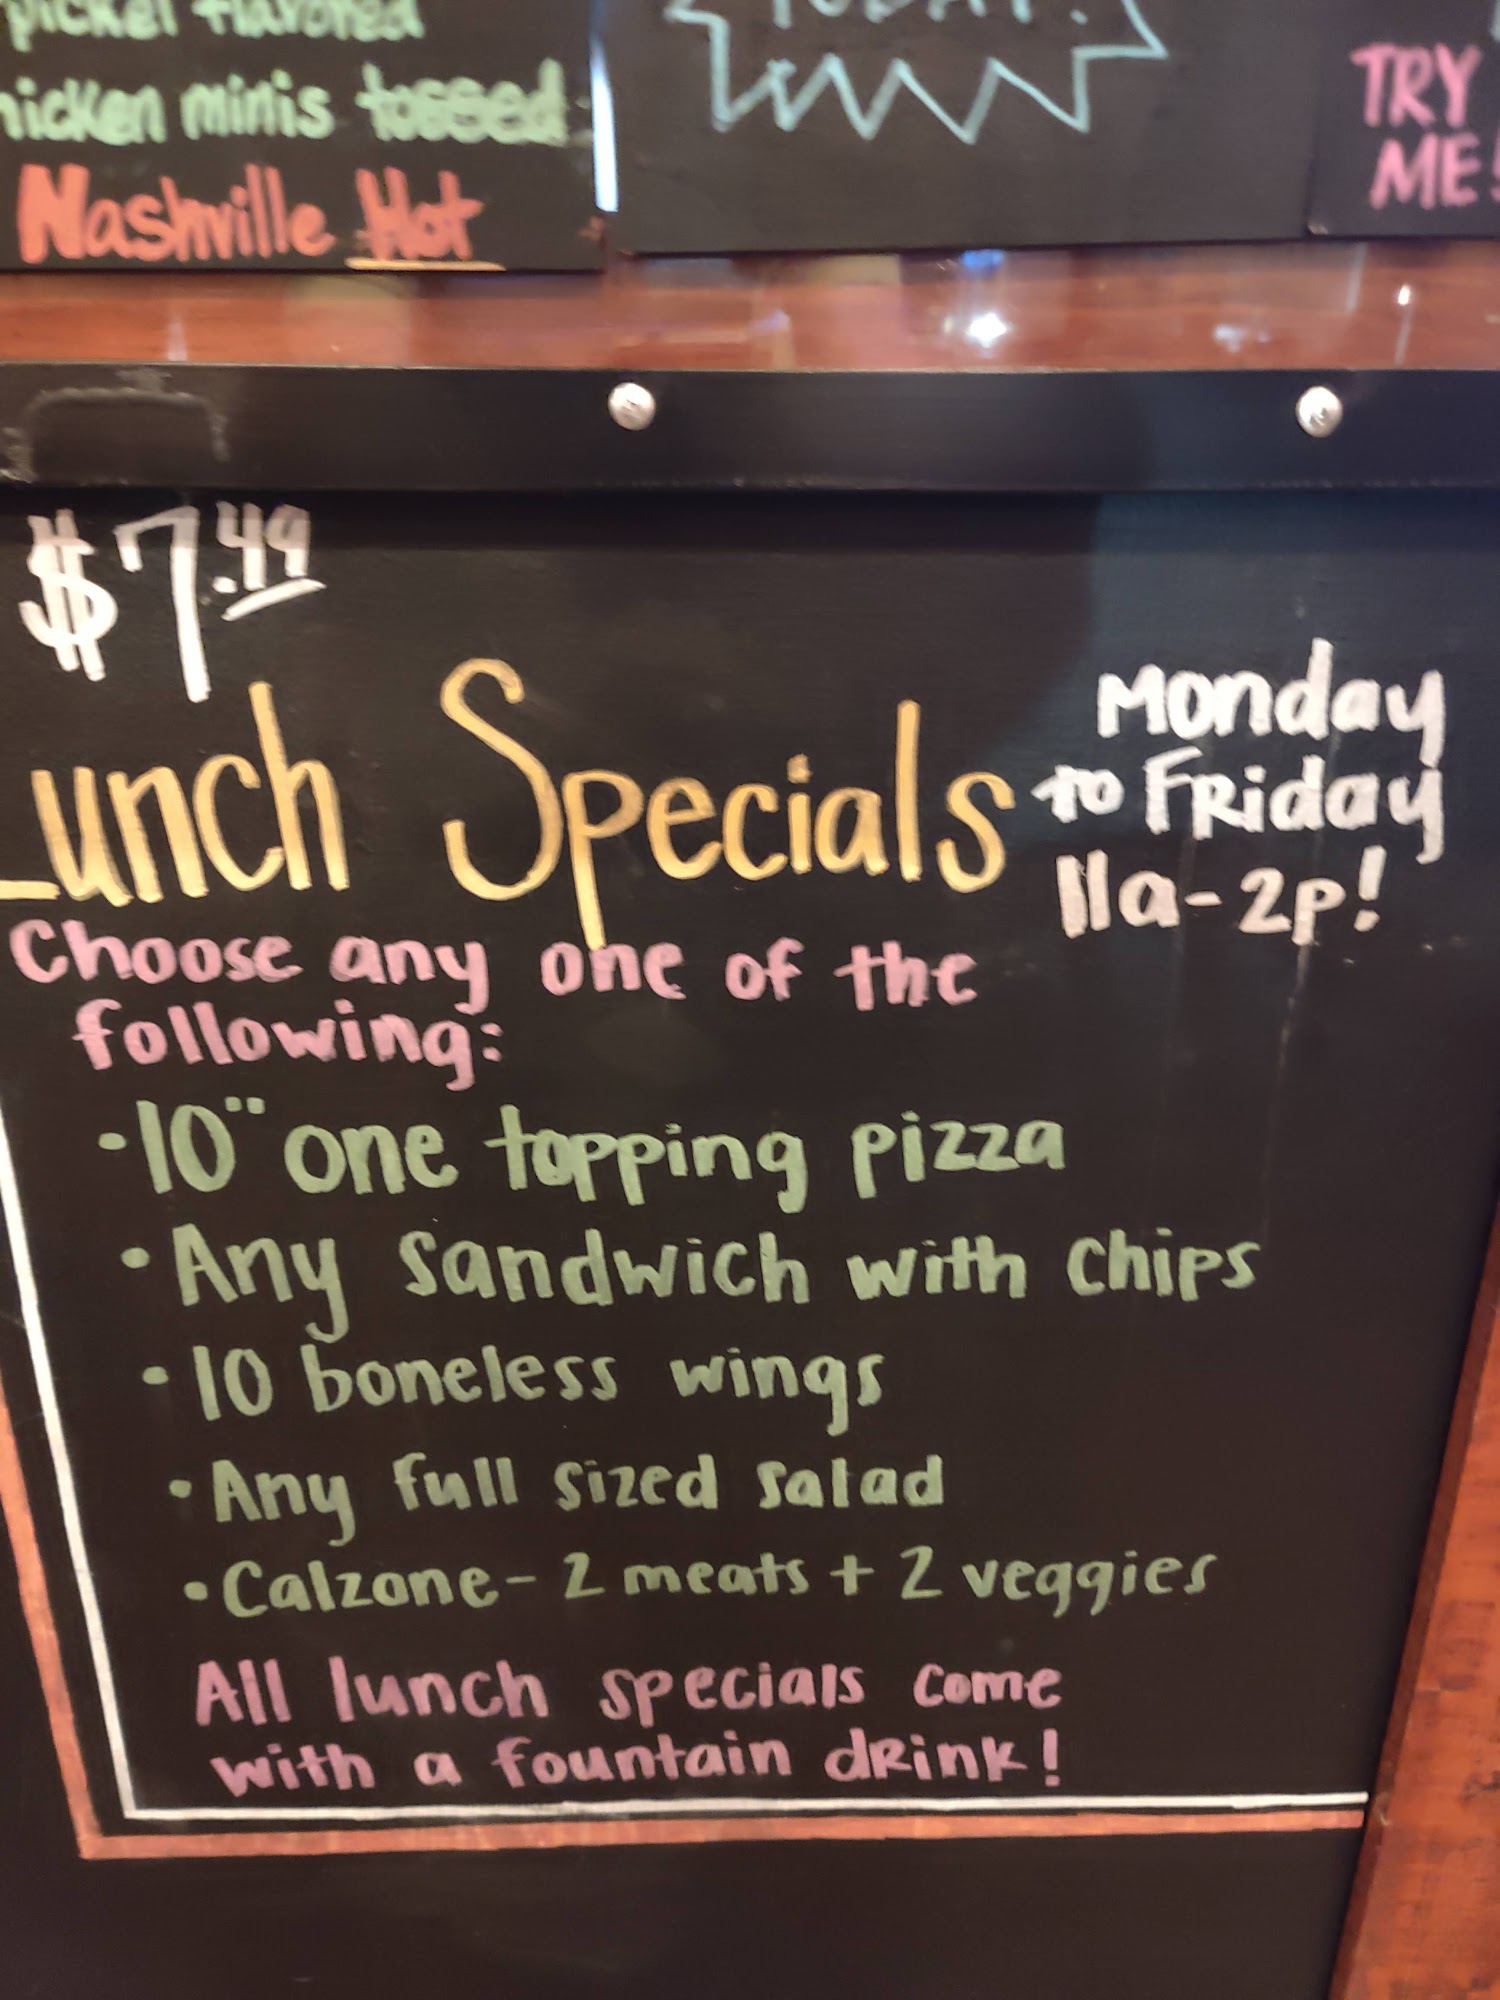 pickel flavored
hicken minis tossed
Nashville Hot
TODAY!
TRY
ME!
$7.49
Lunch Specials
Monday
to Friday
11a-2p!
Choose any one of the
following:
•10" one topping pizza
•Any sandwich with chips
•10 boneless wings
•Any full sized salad
•Calzone- 2 meats + 2 veggies
All lunch specials come
with a fountain drink!